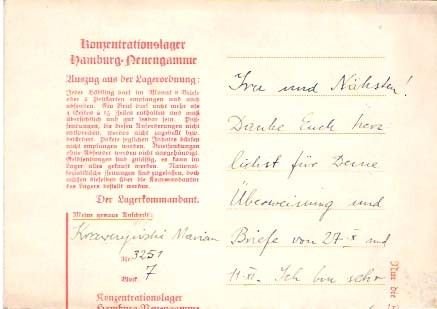 Konzentrationslager
Hamburg-Neuengamme
Auszug aus der Lagerordnung:
Jeder Häftling darf im Monat 2 Briefe
oder 2 Postkarten empfangen und auch
absenden. Ein Brief darf nicht mehr als
4 Seiten à 15 Zeilen enthalten und muß
übersichtlich und gut lesbar sein. Post-
sendungen, die diesen Anforderungen nicht
entsprechen, werden nicht zugestellt bzw.
befördert. Pakete jeglichen Inhaltes dürfen
nicht empfangen werden.
Geldsendungen sind zulässig, es kann im
Lager alles gekauft werden. National-
sozialistische Zeitungen sind zugelassen, doch
müssen dieselben über die Kommandantur
des Lagers bestellt werden.
Der Lagerkommandant.
Meine genaue Anschrift:
Marian
Nr. 3251
Block 7
Konzentrationslager
Hamburg-Neuengamme
Frau und Nächsten!
Danke Euch herz
lichst für Deine
Überweisung und
Briefe von 27-X und
11-XI. Ich bin sehr
Nur die